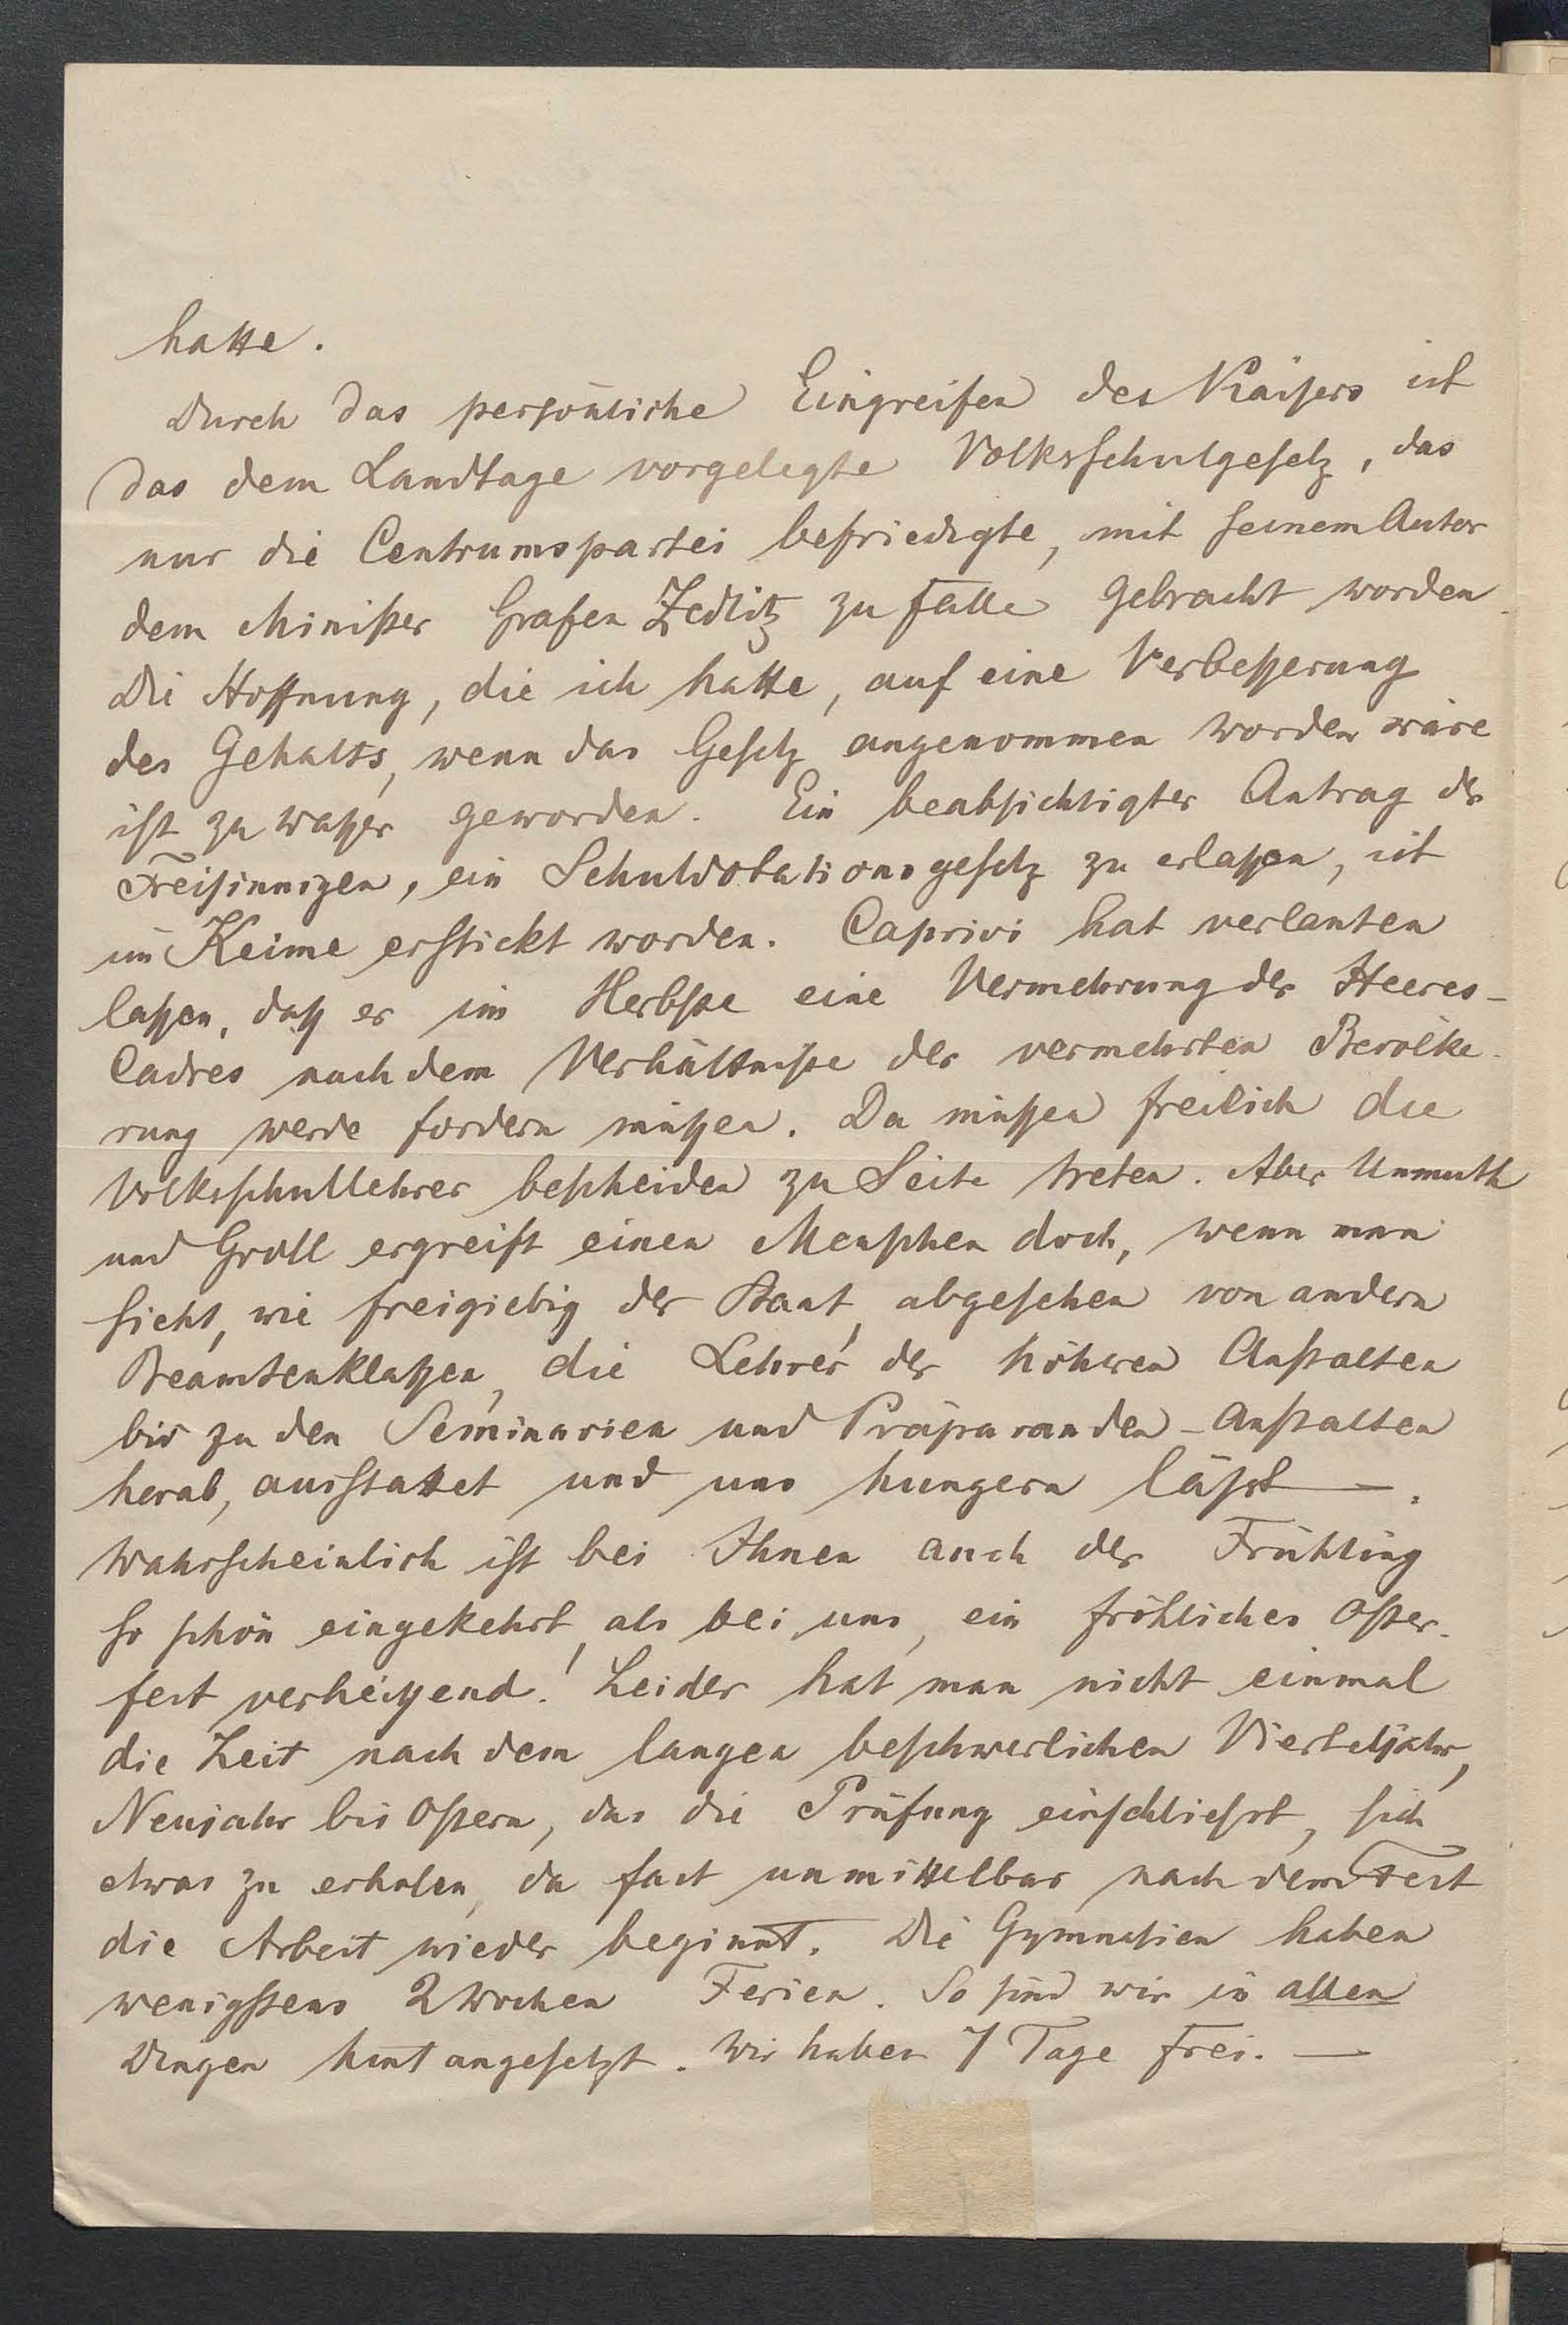 hatte.
Durch das persönliche Eingreifen des Kaisers ist
das dem Landtage vorgelegte Volksschulgesetz, das
nur die Centrumspartei befriedigte, mit seinem Autor
dem Minister Grafen Zedlitz zu Falle gebracht worden.
Die Hoffnung, die ich hatte, auf eine Verbeßerung
des Gehalts, wenn das Gesetz angenommen worden wäre
ist zu Waßer geworden. Ein beabsichtigter Antrag der
Freisinnigen, ein Schuldotationsgesetz zu erlaßen, ist
im Keime erstickt worden. Caprivi hat verlauten
laßen, daß er im Herbste eine Vermehrung der Heeres-
Cadres nach dem Verhältniße der vermehrten Bevölke-
rung werde fordern müßen. Da müßen freilich die
Volksschullehrer bescheiden zu Seite treten. Aber Unmuth
und Groll ergreift einen Menschen doch, wenn man
sieht, wie freigiebig der Staat, abgesehen von andern
Beamtenklaßen, die Lehrer der höheren Anstalten
bis zu den Seminarien und Präparanden-Anstalten
herab, ausstattet und uns hungern läßt —.
Wahrscheinlich ist bei Ihnen auch der Frühling
so schön eingekehrt, als bei uns, ein fröhliches Oster-
fest verheißend! Leider hat man nicht einmal
die Zeit nach dem langen beschwerlichen Vierteljahr,
Neujahr bis Ostern, das die Prüfung einschließt, sich
etwas zu erholen, da fast unmittelbar nach dem Fest
die Arbeit wieder beginnt. Die Gymnasien haben
wenigstens 2 Wochen Ferien. So sind wir in allen
Dingen hintangesetzt. Wir haben 7 Tage frei. —